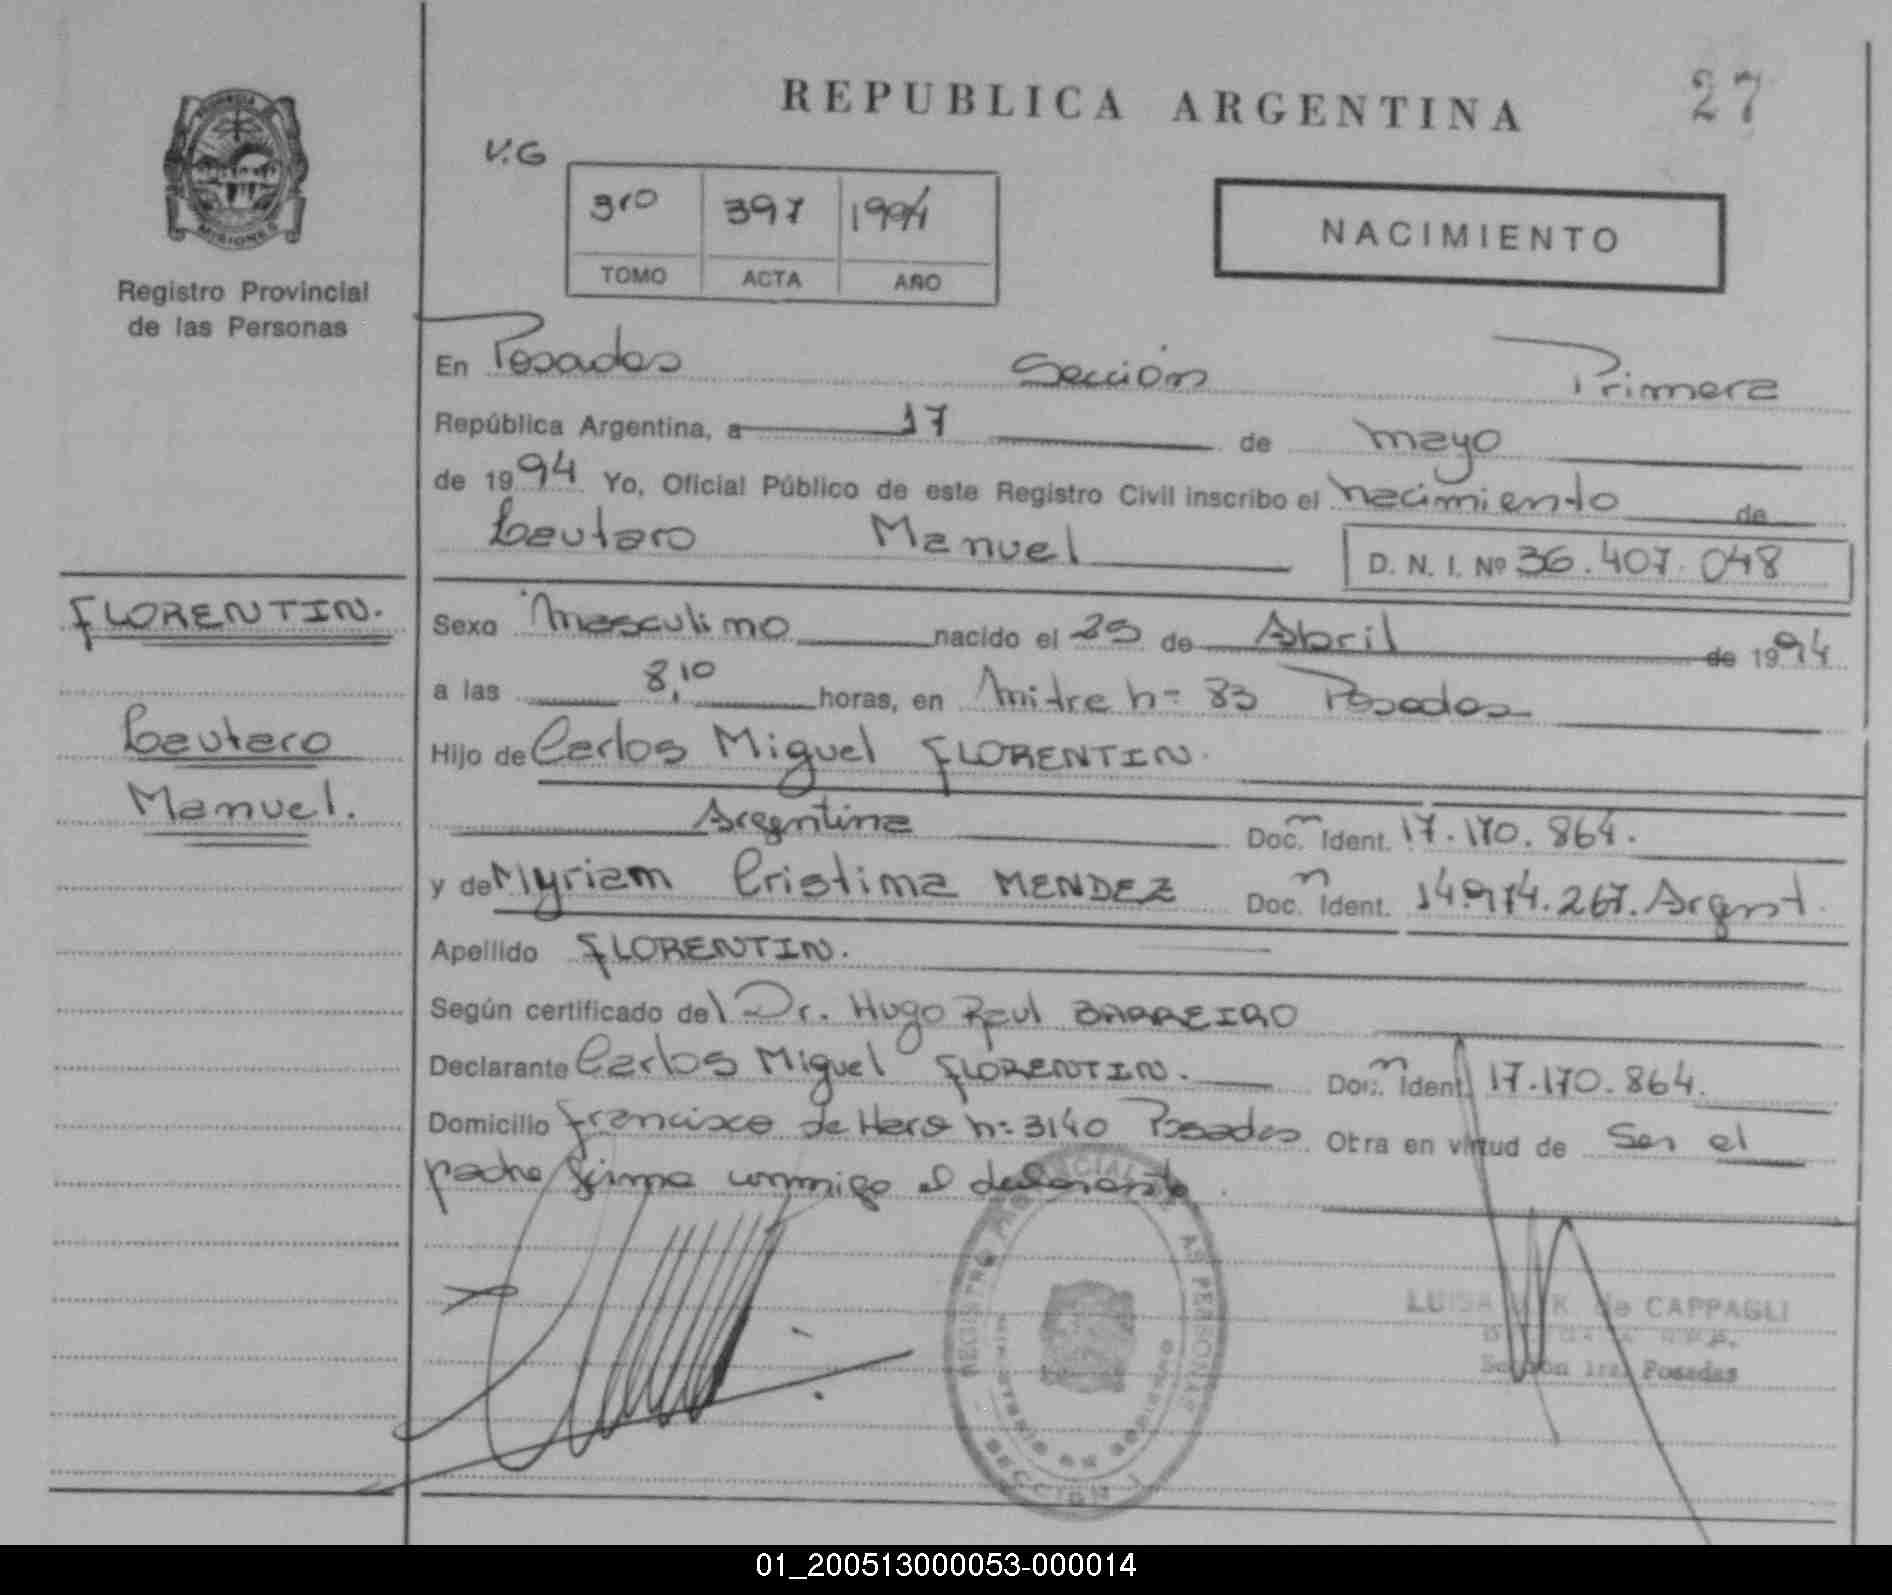 REPUBLICA ARGENTINA
27
V.G
3ro 397 1994
TOMO ACTA AÑO
NACIMIENTO
MISIONES
Registro Provincial
de las Personas
En Posadas Sección Primera
República Argentina, a 17 de mayo
de 1994 Yo, Oficial Público de este Registro Civil inscribo el nacimiento de
Lautaro Manuel
D. N. I. Nº 36.407.048
FLORENTIN.
Lautaro
Manuel.
Sexo Masculino nacido el 25 de Abril de 1994
a las 8,10 horas, en Mitre n= 83 Posadas
Hijo de Carlos Miguel FLORENTIN.
Argentina Doc. Ident. 17.170.864.
y de Myriam Cristina MENDEZ Doc. Ident. 14.974.267. Argent.
Apellido FLORENTIN.
Según certificado del Dr. Hugo Raul BARREIRO
Declarante Carlos Miguel FLORENTIN. Doc. Ident. 17.170.864.
Domicilio Francisco de Haro n= 3140 Posadas Otra en virtud de Ser el
padre firma conmigo el declarante.
LUISA K. de CAPPAGLI
Sección 1ra. Posadas
01_200513000053-000014